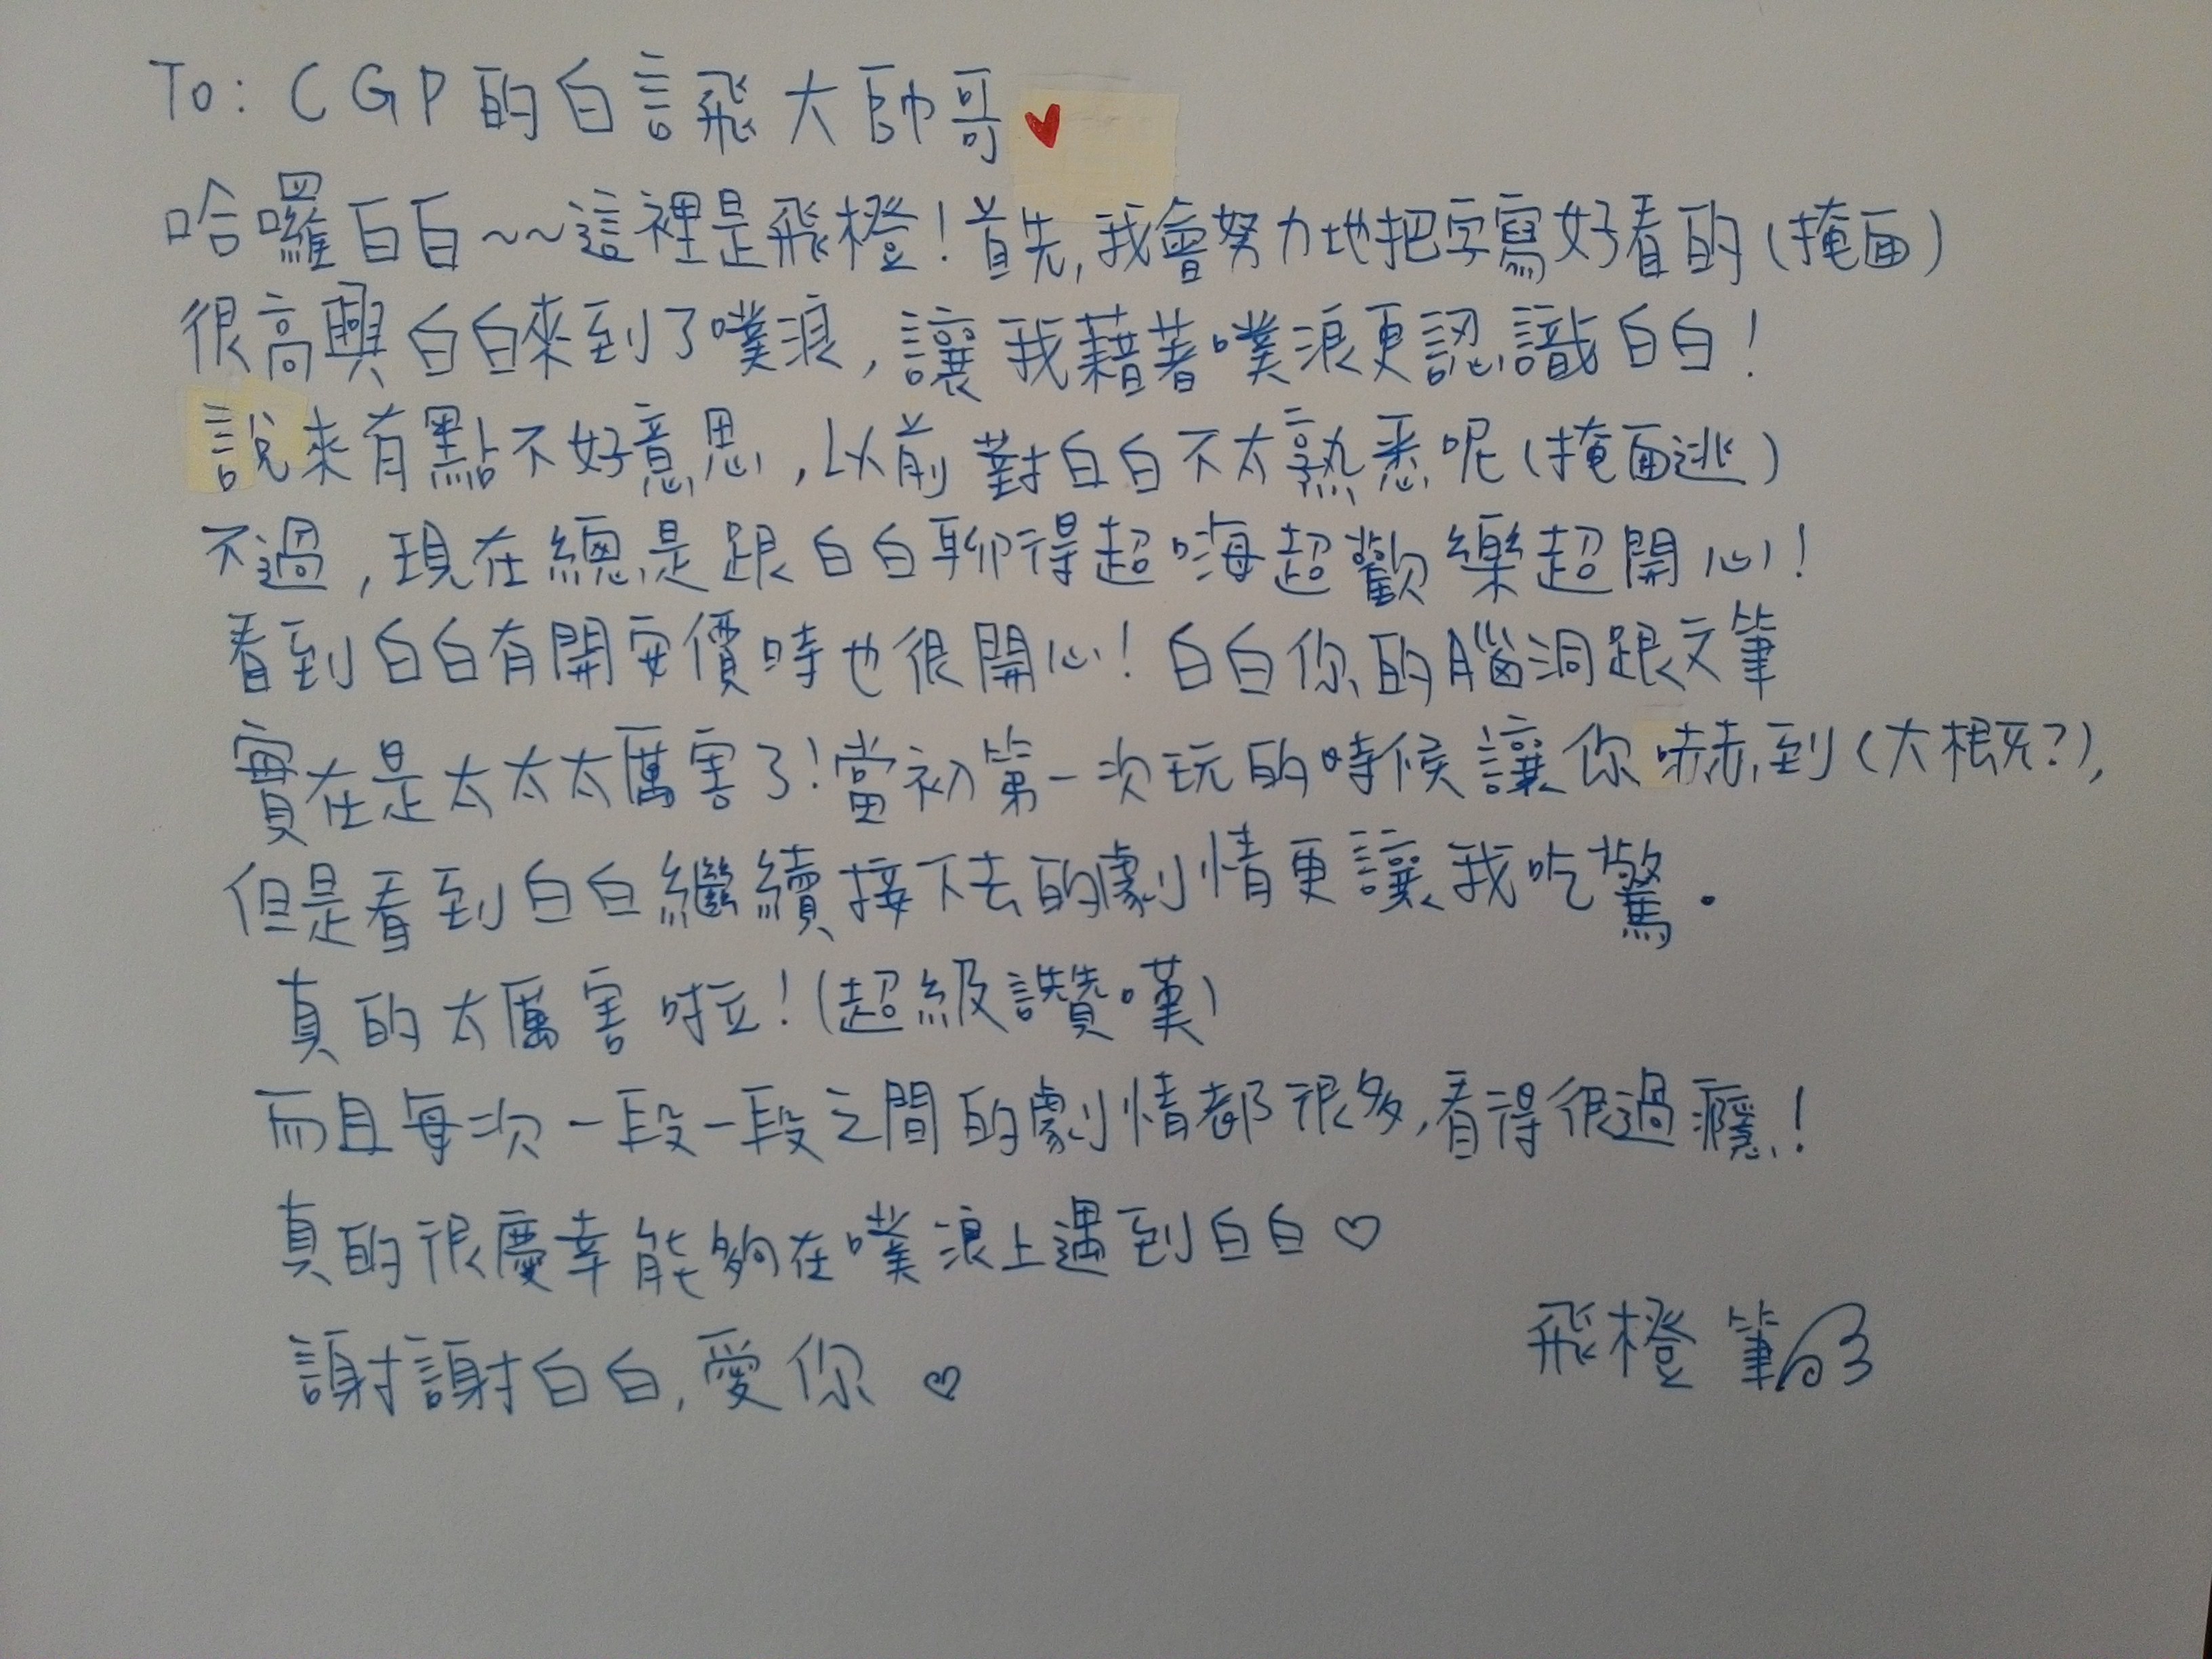 To: CGP的白言飛大帥哥♥
哈囉白白~~這裡是飛橙!首先,我會努力地把字寫好看的(掩面)
很高興白白來到了噗浪,讓我藉著噗浪更認識白白!
說來有點不好意思,以前對白白不太熟悉呢(掩面逃)
不過,現在總是跟白白聊得超嗨超歡樂超開心!
看到白白有開安價時也很開心!白白你的腦洞跟文筆
實在是太太太厲害了!當初第一次玩的時候讓你嚇到(大概?),
但是看到白白繼續接下去的劇情更讓我吃驚.
真的太厲害啦!(超級讚嘆)
而且每次一段一段之間的劇情都很多,看得很過癮!
真的很慶幸能夠在噗浪上遇到白白♡
謝謝白白,愛你♡
飛橙 筆